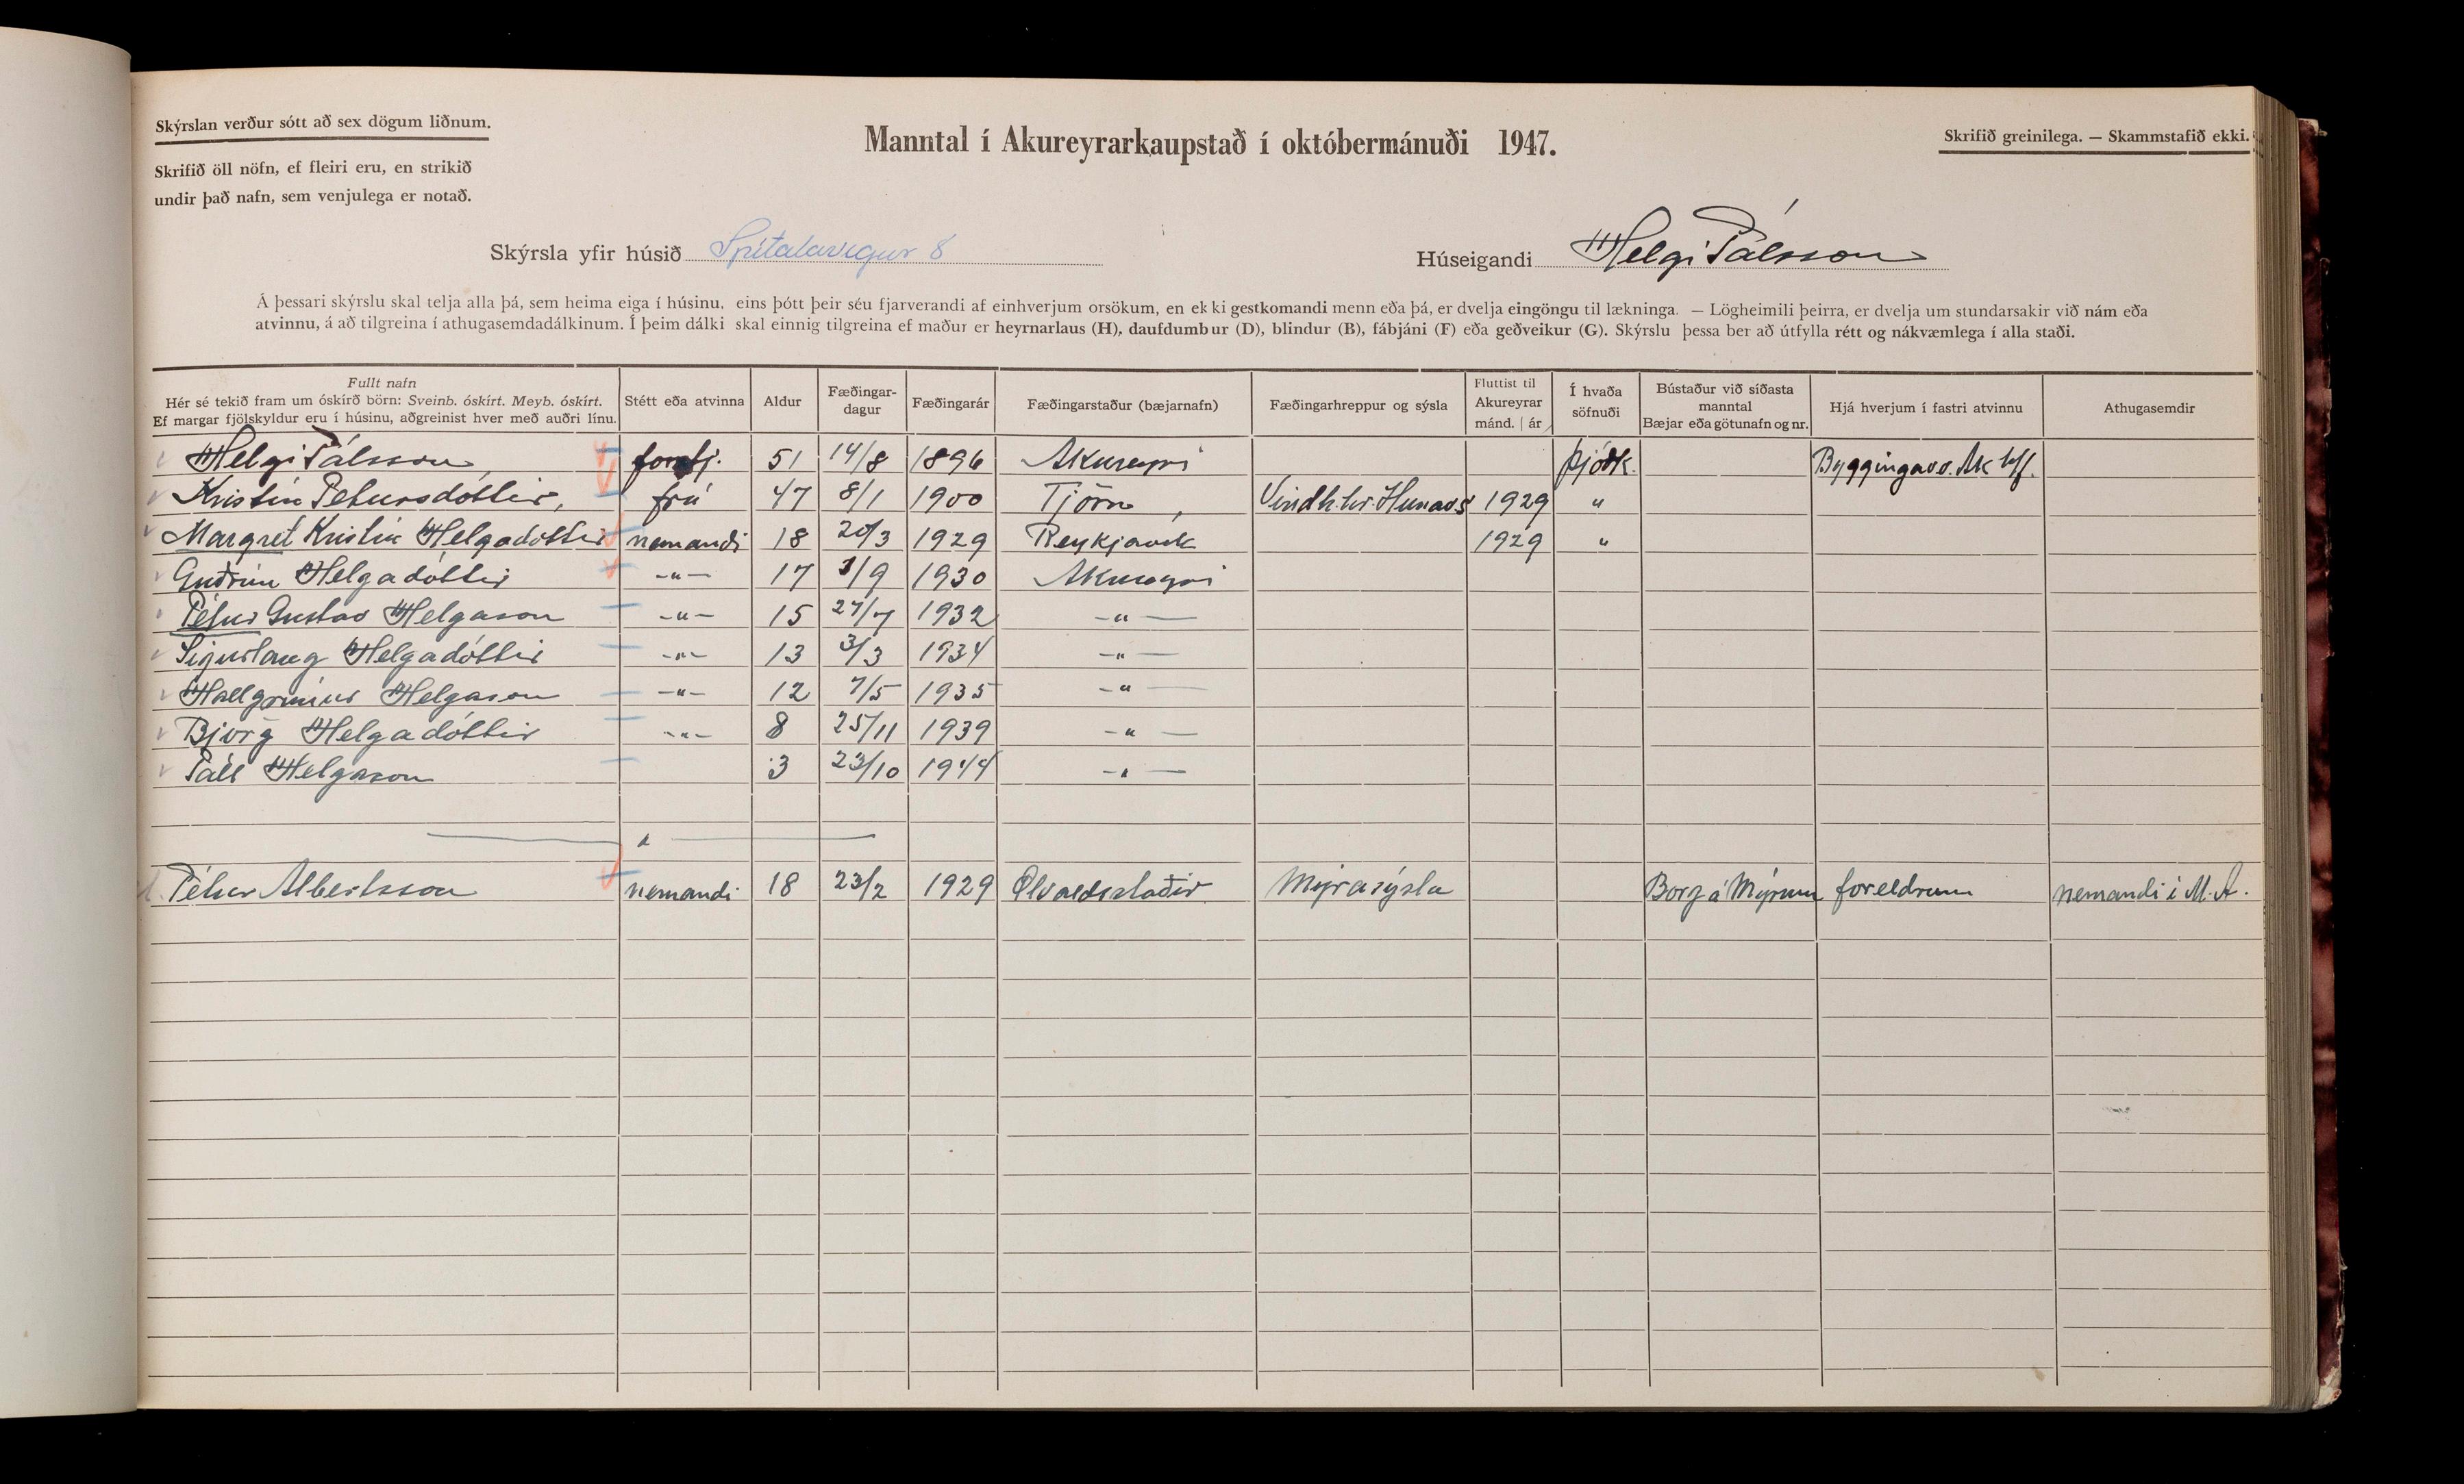 Skýrslan verður sótt að sex dögum liðnum.
Skrifið öll nöfn, ef fleiri eru, en strikið
undir það nafn, sem venjulega er notað.
Manntal í Akureyrarkaupstað í októbermánuði 1947.
Skrifið greinilega. — Skammstafið ekki.
Skýrsla yfir húsið Spítalavegur 8
Húseigandi Helgi Pálsson
Á þessari skýrslu skal telja alla þá, sem heima eiga í húsinu, eins þótt þeir séu fjarverandi af einhverjum orsökum, en ekki gestkomandi menn eða þá, er dvelja eingöngu til lækninga. — Lögheimili þeirra, er dvelja um stundarsakir við nám eða
atvinnu, á að tilgreina í athugasemdadálkinum. Í þeim dálki skal einnig tilgreina ef maður er heyrnarlaus (H), daufdumbur (D), blindur (B), fábjáni (F) eða geðveikur (G). Skýrslu þessa ber að útfylla rétt og nákvæmlega í alla staði.
Fullt nafn
Hér sé tekið fram um óskírð börn: Sveinb. óskírt. Meyb. óskírt.
Ef margar fjölskyldur eru í húsinu, aðgreinist hver með auðri línu.
Stétt eða atvinna
Aldur
Fæðingar-
dagur
Fæðingarár
Fæðingarstaður (bæjarnafn)
Fæðingarhreppur og sýsla
Fluttist til
Akureyrar
mánd. | ár
Í hvaða
söfnuði
Bústaður við síðasta
manntal
Bæjar eða götunafn og nr.
Hjá hverjum í fastri atvinnu
Athugasemdir
Helgi Pálsson forstj. 51 14/8 1896 Akureyri þjóðk. Byggingavv. Ak h/f.
Kristín Petursdóttir, frú 47 8/1 1900 Tjörn, Vindh.hr. Hunavs 1929 "
Margret Kristín Helgadóttir nemandi 18 20/3 1929 Reykjavík 1929 "
Guðrún Helgadóttir -"- 17 1/9 1930 Akureyri
Pétur Gustav Helgason -"- 15 27/7 1932 -"-
Sigurlaug Helgadóttir -"- 13 3/3 1934 -"-
Hallgrímur Helgason -"- 12 7/5 1935 -"-
Björg Helgadóttir -"- 8 25/11 1939 -"-
Páll Helgason 3 23/10 1944 -"-
Pétur Albertsson nemandi 18 23/2 1929 Ölvaldsstaðir Mýrasýsla Borg á Mýrum foreldrum nemandi í M.A.